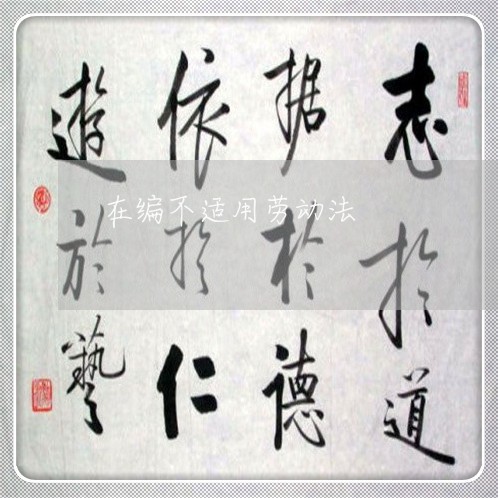 志於道
据於德
依於仁
遊於藝
在编不适用劳动法